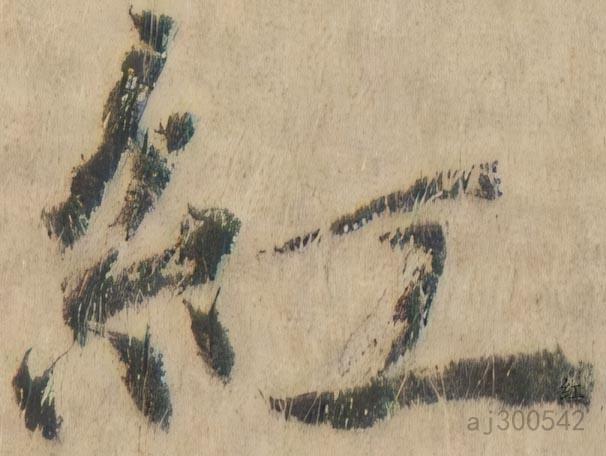 红
紅
aj300542